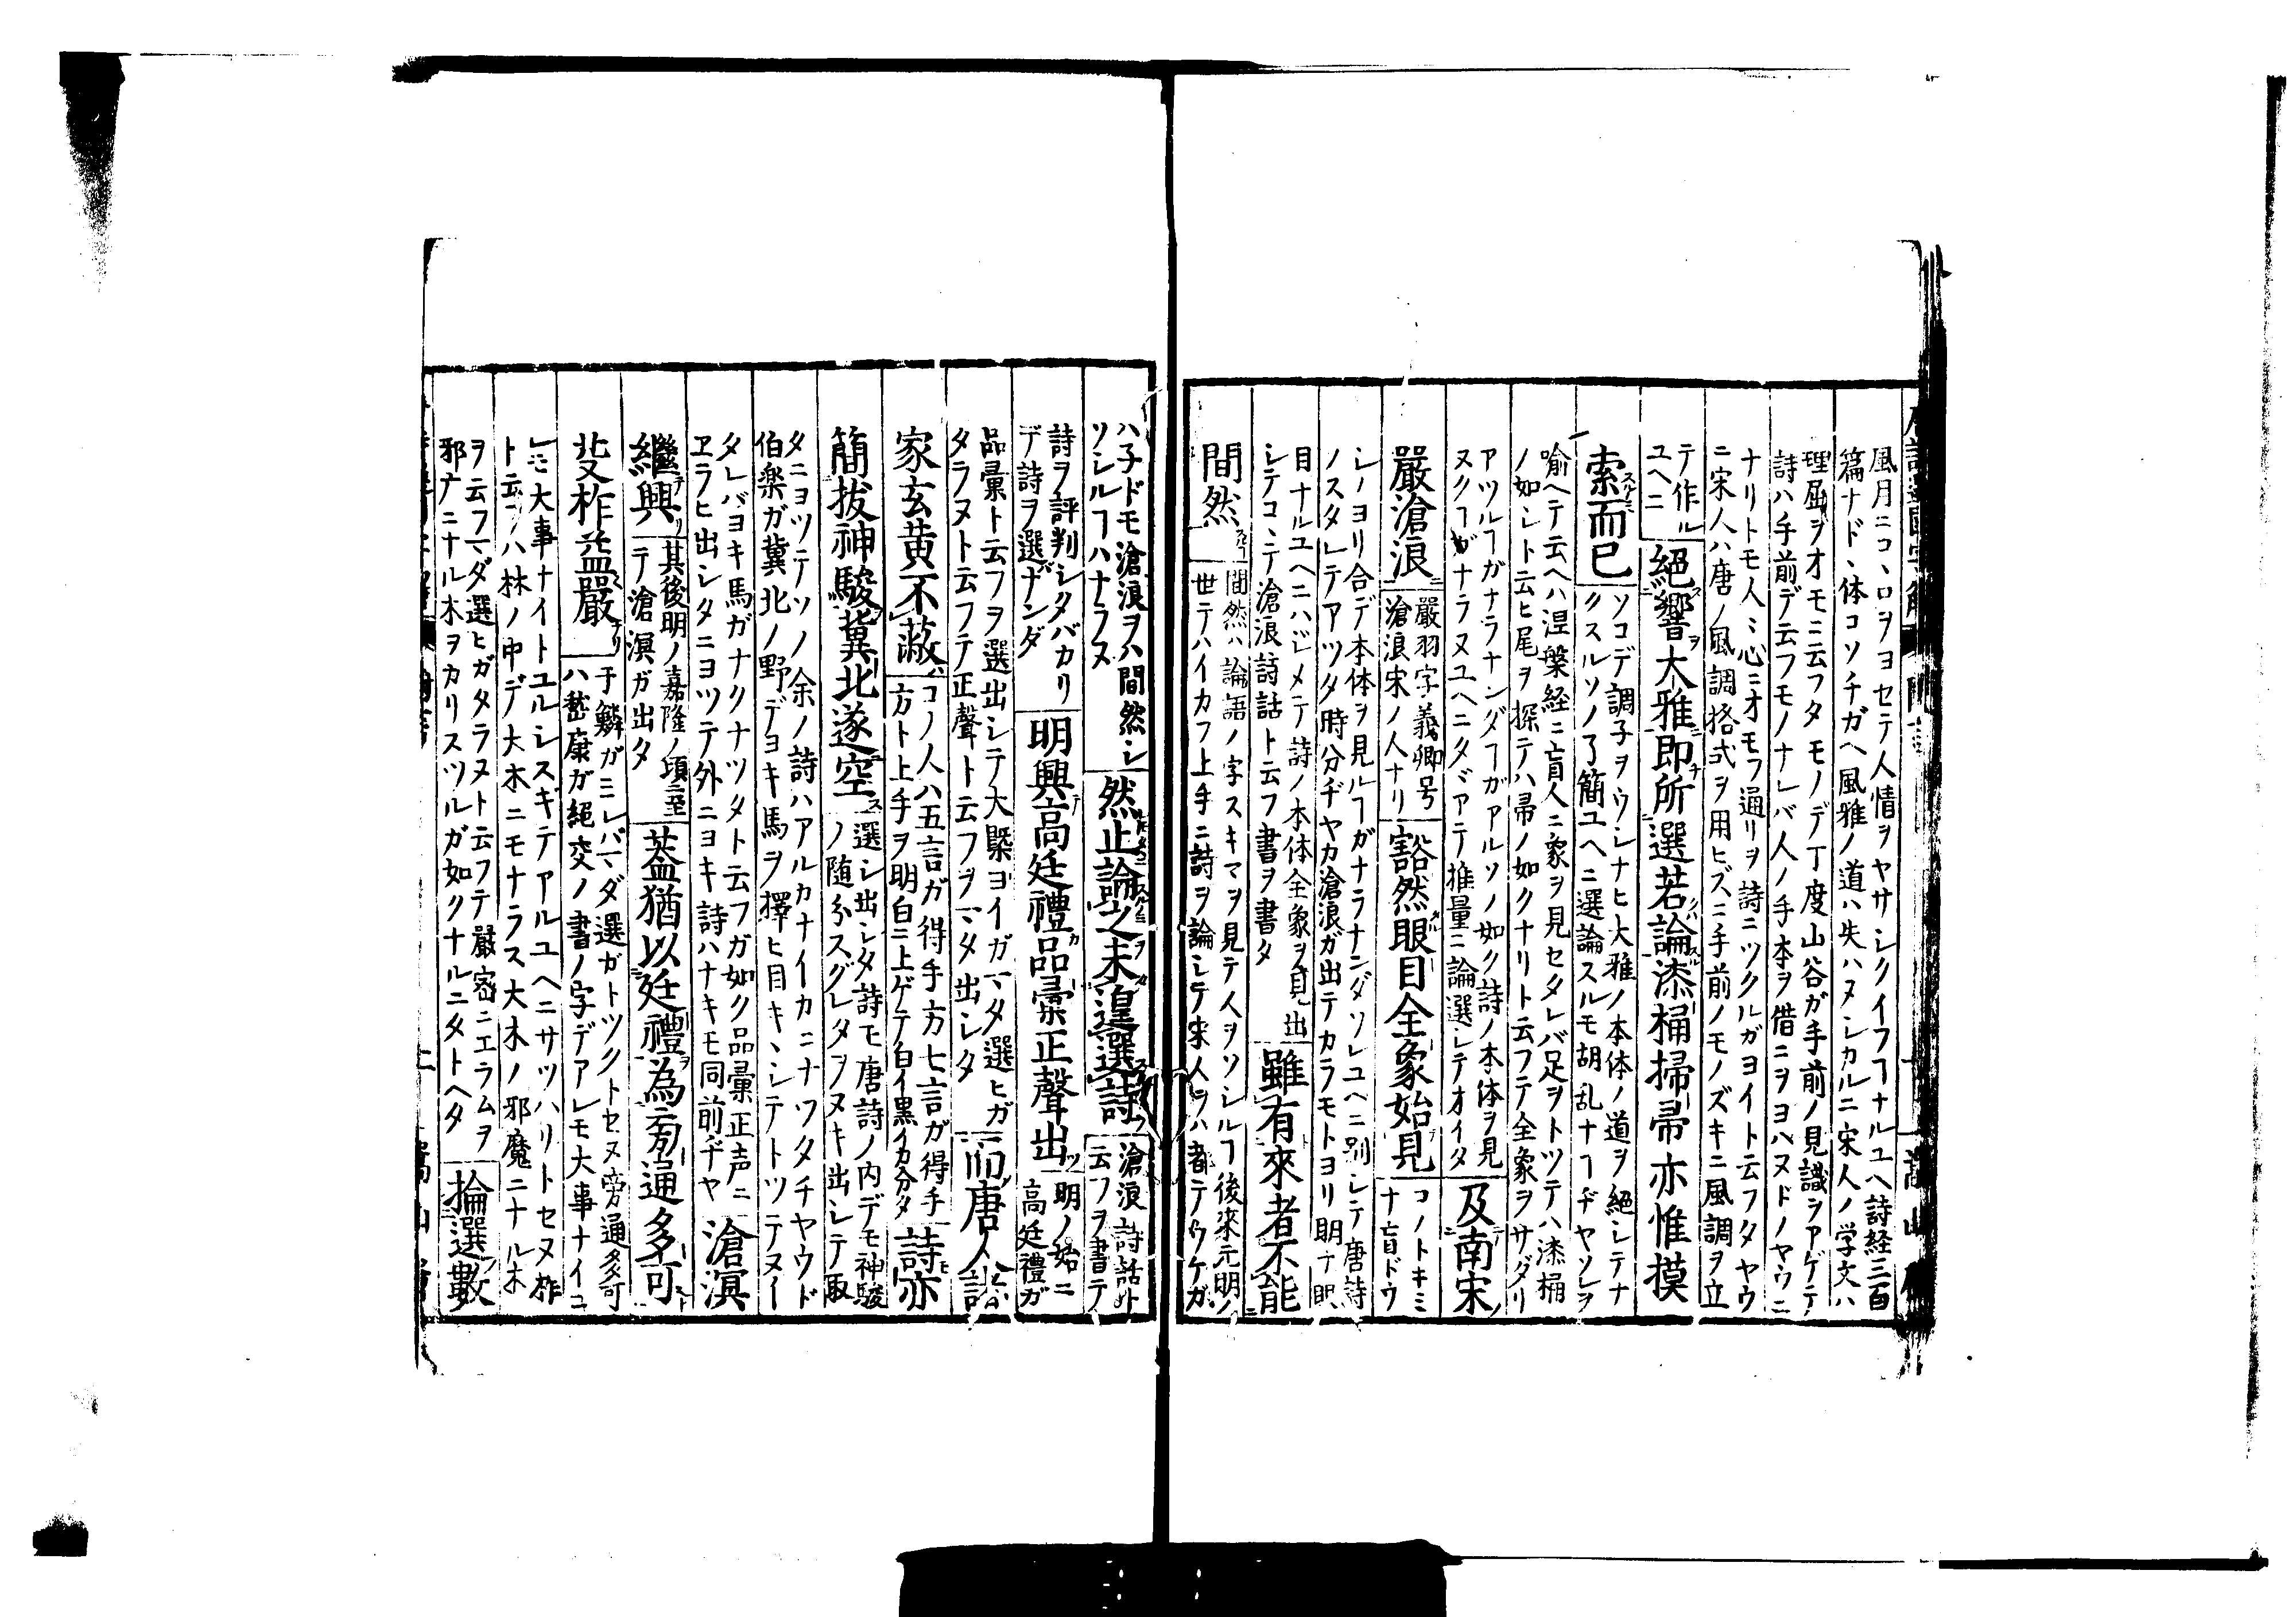 風月ニコヽロヲヨセテ人情ヲヤサシクイフヿナルユヘ詩経三百
篇ナドヽ体コソチガヘ風雅ノ道ハ失ハヌシカルニ宋人ノ学文ハ
理屈ヲオモニ云フタモノデ丁度山谷ガ手前ノ見識ヲアゲテ
詩ハ手前デ云フモノナレバ人ノ手本ヲ借ニヲヨハヌドノヤウニ
ナリトモ人〻心ニオモフ通リヲ詩ニツクルガヨイト云フタヤウ
ニ宋人ハ唐ノ風調格式ヲ用ヒズニ手前ノモノズキニ風調ヲ立
テ作ル
ユヘニ
絕響大雅即所選若論漆桶掃帚亦惟摸
索而已
ソコデ調子ヲウシナヒ大雅ノ本体ノ道ヲ絕シテナ
クスルソノ了簡ユヘニ選論スルモ胡乱ナヿヂヤソレヲ
喻ヘテ云ヘハ涅槃経ニ盲人ニ象ヲ見セタレバ足ヲトツテハ漆桶
ノ如シト云ヒ尾ヲ探テハ帚ノ如クナリト云フテ全象ヲサダリ
アツルヿガナラナンダヿガアルソノ如ク詩ノ本体ヲ見
ヌクヿガナラヌユヘニタヾアテ推量ニ論選シテオイタ
及南宋
嚴滄浪
嚴羽字義卿号
滄浪宋ノ人ナリ
豁然眼目全象始見
コノトキミ
ナ盲ドウ
シノヨリ合デ本体ヲ見ルヿガナラナンダソレユヘニ別シテ唐詩
ノスタレテアツタ時分ヂヤカ滄浪ガ出テカラモトヨリ明ナ眼
目ナルユヘニハジメテ詩ノ本体全象ヲ見出
シテコヽニテ滄浪詩話ト云フ書ヲ書タ
雖有來者不能
間然
間然ハ論語ノ字スキマヲ見テ人ヲソシルヿ後來元明ノ
世テハイカフ上手ニ詩ヲ論シテ宋人ヲハ都テウケガ
ハ子ドモ滄浪ヲハ間然シ
ソシルヿハナラヌ
然止論之未遑選詩
滄浪詩話ト
云フヲ書テ
詩ヲ評判シタバカリ
デ詩ヲ選バナンダ
明興高廷禮品彙正聲出
明ノ始ニ
高廷禮ガ
品彙ト云フヲ選出シテ大槩ヨイガマタ選ヒガ
タラヌト云フテ正聲ト云フヲマタ出シタ
而唐人諸
家玄黄不蔽
コノ人ハ五言ガ得手方七言ガ得手
方ト上手ヲ明白ニ上ゲテ白イ黒イカ分タ
詩亦
簡抜神駿冀北遂空
選シ出シタ詩モ唐詩ノ内デモ神駿
ノ随分スグレタヲヌキ出シテ取
タニヨツテソノ余ノ詩ハアルカナイカニナツタチヤウド
伯楽ガ冀北ノ野デヨキ馬ヲ擇ヒ目キヽシテトツテヌイ
タレバヨキ馬ガナクナツタト云フガ如ク品彙正声ニ
ヱラヒ出シタニヨツテ外ニヨキ詩ハナキモ同前ヂヤ
滄溟
繼興
其後明ノ嘉隆ノ頃ニ至
テ滄溟ガ出タ
葢猶以廷禮為旁通多可
于鱗ガミレバマダ選ガトツクトセヌ旁通多可
ハ嵆康ガ絕交ノ書ノ字デアレモ大事ナイコ
芟柞益嚴
レモ大事ナイトユルシスギテアルユヘニサツハリトセヌ柞
ト云フハ林ノ中デ大木ニモナラス大木ノ邪魔ニナル木
ヲ云フマダ選ヒガタラヌト云フテ嚴密ニエラムヲ
邪广ニナル木ヲカリスツルガ如クナルニタトヘタ
掄選數